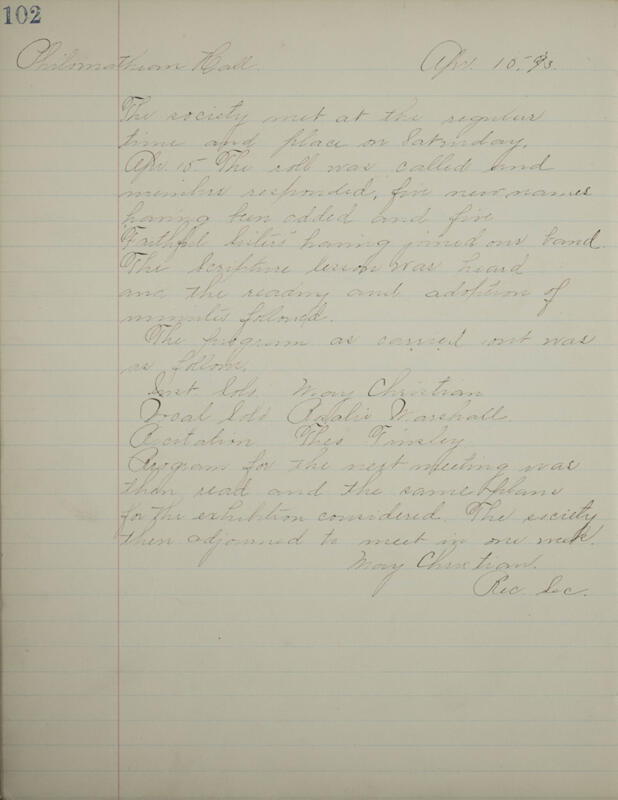 102
Philomathean Hall. Apr. 15-93.
The society met at the regular
time and place on Saturday,
Apr. 15 The roll was called and
members responded, five new names
having been added and five
"Faithful Sisters" having joined our band.
The Scripture lesson was heard
and the reading and adoption of
minutes followed.
The program as carried out was
as follows.
Inst Solo. May Christian
Vocal Solo Rosalie Marshall.
Recitation Theo Tinsley
Program for the next meeting was
then read and the same plans
for the exhibition considered. The society
then adjourned to meet in one week.
May Christian.
Rec. Sec.